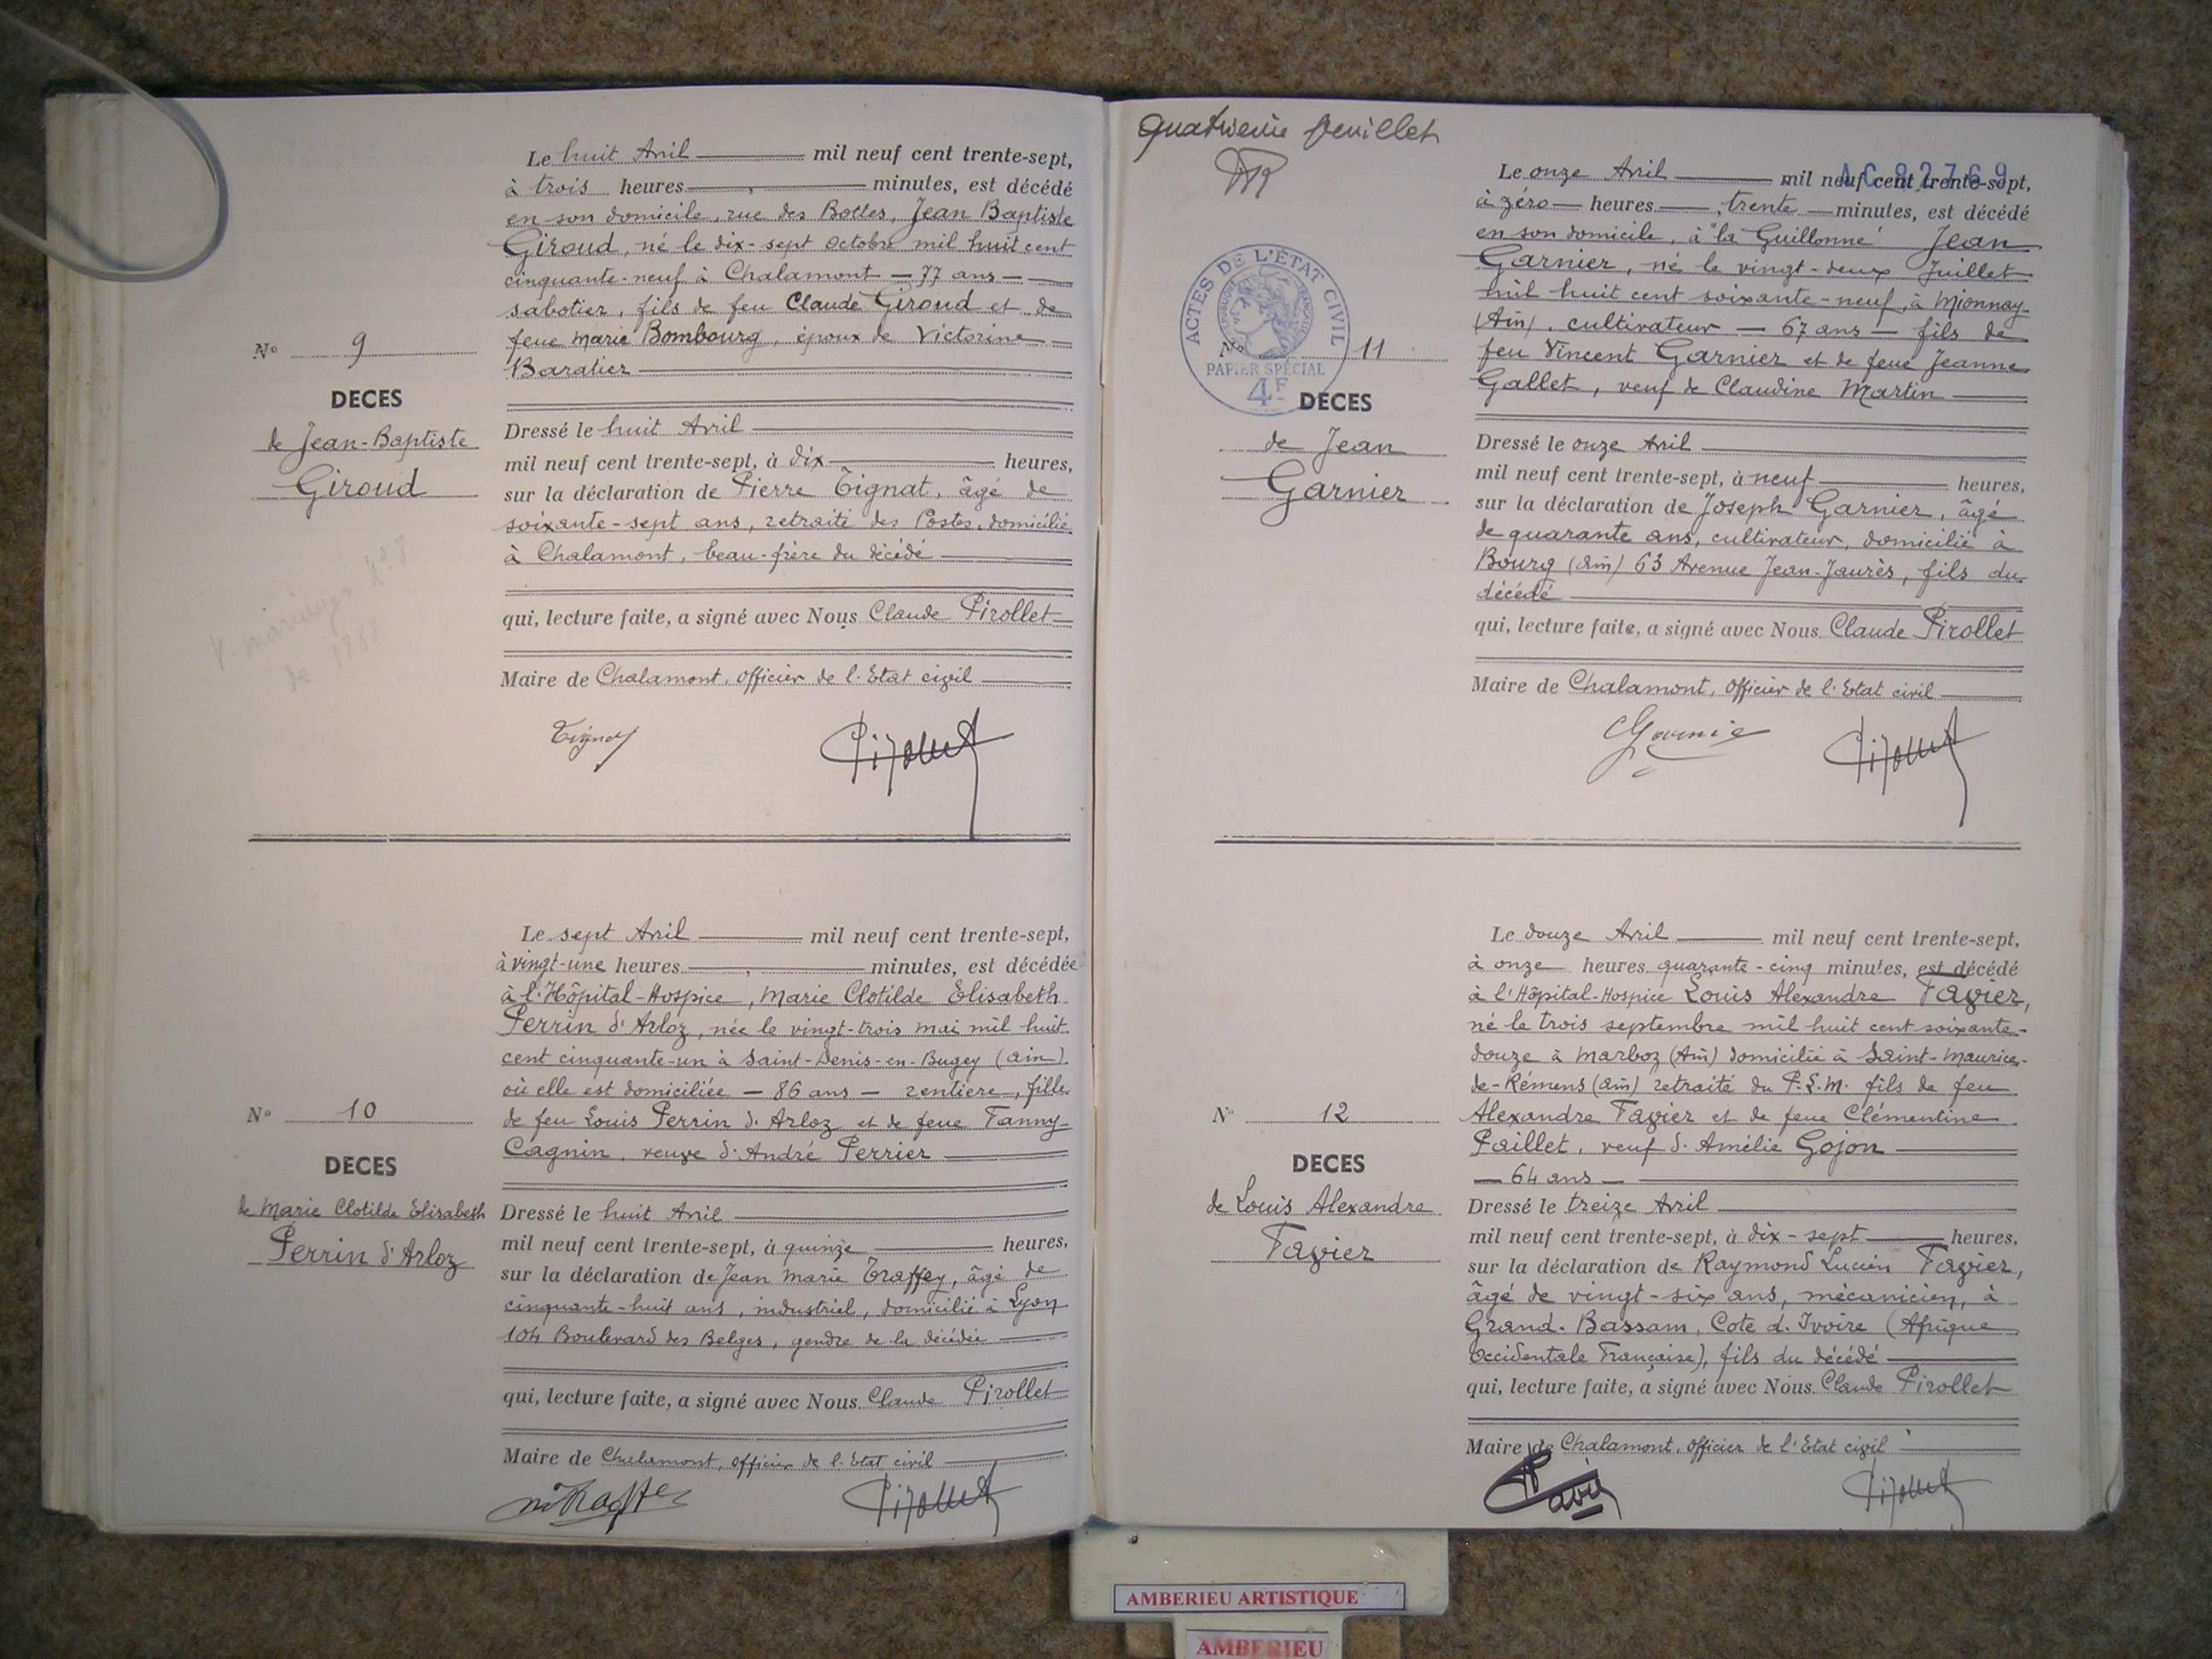 Le huit Avril mil neuf cent trente-sept,
à trois heures, minutes, est décédé
en son domicile, rue des Bottes, Jean Baptiste
Giroud, né le dix-sept octobre mil huit cent
cinquante-neuf à Chalamont — 77 ans —
sabotier, fils de feu Claude Giroud et de
feue Marie Bombourg, époux de Victorine
Baratier
N° 9
DECES
de Jean-Baptiste
Giroud
Dressé le huit Avril
mil neuf cent trente-sept, à dix heures,
sur la déclaration de Pierre Tignat, âgé de
soixante-sept ans, retraité des Postes, domicilié
à Chalamont, beau-frère du décédé
N° 8
V. mariage
de 1888
qui, lecture faite, a signé avec Nous Claude Pirollet
Maire de Chalamont, Officier de l'Etat civil
Tignat
Pirollet
Le sept Avril mil neuf cent trente-sept,
à vingt-une heures, minutes, est décédée
à l'Hôpital-Hospice, Marie Clotilde Elisabeth
Perrin d'Arloz, née le vingt-trois mai mil huit
cent cinquante-un à Saint-Denis-en-Bugey (ain)
où elle est domiciliée — 86 ans — rentière, fille
de feu Louis Perrin d'Arloz et de feue Fanny
Cagnin, veuve d'André Perrier
N° 10
DECES
de Marie Clotilde Elisabeth
Perrin d'Arloz
Dressé le huit Avril
mil neuf cent trente-sept, à quinze heures,
sur la déclaration de Jean Marie Traffey, âgé de
cinquante-huit ans, industriel, domicilié à Lyon
104 Boulevard des Belges, gendre de la décédée
qui, lecture faite, a signé avec Nous Claude Pirollet
Maire de Chalamont, officier de l'Etat civil
Pirollet
quatrième feuillet
AC 82769
ACTES DE L'ÉTAT CIVIL
PAPIER SPÉCIAL
4F
Le onze Avril mil neuf cent trente-sept,
à zéro heures, trente minutes, est décédé
en son domicile, à "la Guillonne" Jean
Garnier, né le vingt-deux Juillet
mil huit cent soixante-neuf, à Mionnay
(Ain), cultivateur — 67 ans — fils de
feu Vincent Garnier et de feue Jeanne
Gallet, veuf de Claudine Martin
N° 11
DECES
de Jean
Garnier
Dressé le onze Avril
mil neuf cent trente-sept, à neuf heures,
sur la déclaration de Joseph Garnier, âgé
de quarante ans, cultivateur, domicilié à
Bourg (ain) 63 Avenue Jean-Jaurès, fils du
décédé
qui, lecture faite, a signé avec Nous Claude Pirollet
Maire de Chalamont, Officier de l'Etat civil
Garnie
Pirollet
Le douze Avril mil neuf cent trente-sept,
à onze heures quarante-cinq minutes, est décédé
à l'Hôpital-Hospice Louis Alexandre Tavier,
né le trois septembre mil huit cent soixante-
douze à Marboz (Ain) domicilié à Saint-Maurice-
de-Rémens (ain) retraité du P.L.M. fils de feu
Alexandre Tavier et de feue Clémentine
Paillet, veuf d'Amélie Gojon
— 64 ans —
N° 12
DECES
de Louis Alexandre
Tavier
Dressé le treize Avril
mil neuf cent trente-sept, à dix-sept heures,
sur la déclaration de Raymond Lucien Tavier,
âgé de vingt-six ans, mécanicien, à
Grand-Bassam, Cote d'Ivoire (Afrique
Occidentale Française), fils du décédé
qui, lecture faite, a signé avec Nous Claude Pirollet
Maire de Chalamont, Officier de l'Etat civil
Pirollet
AMBERIEU ARTISTIQUE
AMBERIEU